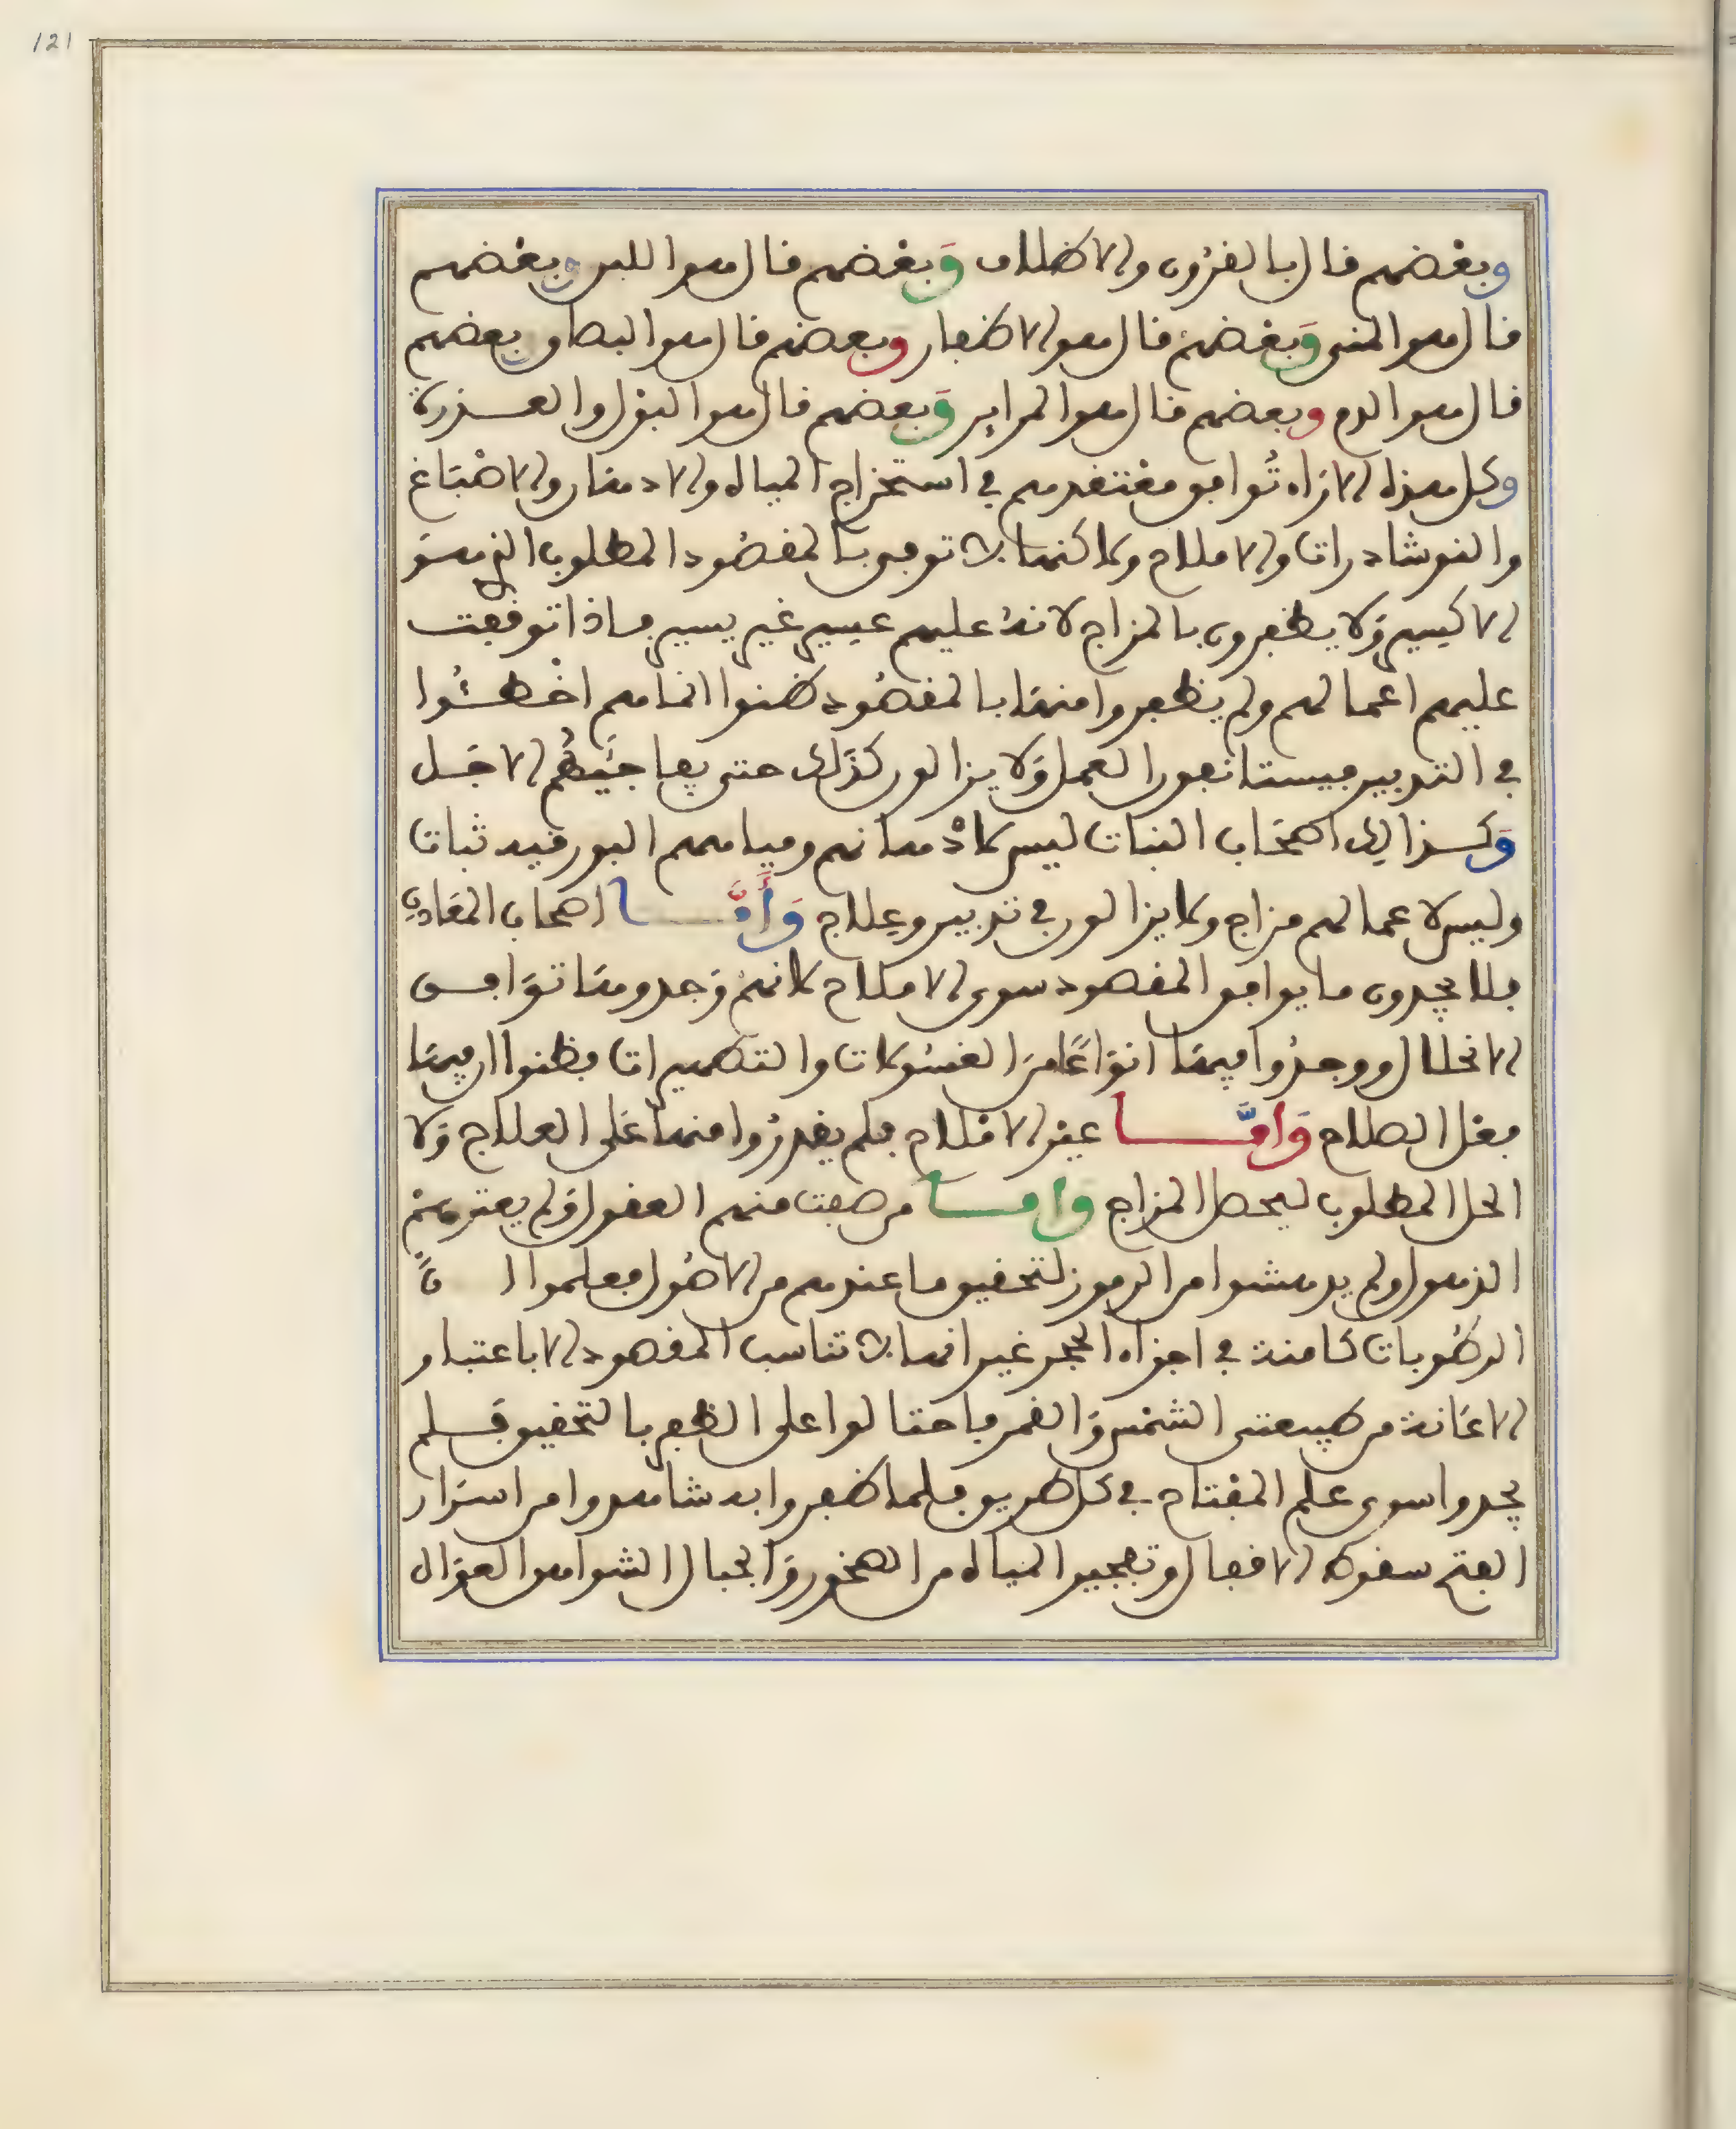 121
وبعضهم قال بالقرون والاظلاف وبعضهم قال هو اللبن وبعضهم
قال هو المني وبعضهم قال هو الاظفار وبعضهم قال هو البصاق وبعضهم
قال هو الدم وبعضهم قال هو المراير وبعضهم قال هو البول والعذرة
وكل هذه الاراء توافق معتقدهم في استخراج المياه والادهان والاصباغ
والنوشادرات والاملاح ولاكنها لا توفي بالمقصود المطلوب الذي هو
الاكسير ولا يظفرون بالمزاج لانه عليهم عسير غير يسير فاذا توقفت
عليهم اعمالهم ولم يظفروا منها بالمقصود ظنوا انما هم اخطئوا
في التدبير فيستانفون العمل ولا يزالون كذلك حتى يفاجئهم الاجل
وكذالك اصحاب النبات ليس لادهانهم ومياههم البورقيه ثبات
وليس لاعمالهم مزاج ولا يزالون في تدبير وعلاج وأمَّا اصحاب المعادن
فلا يجدون ما يوافق المقصود سوى الاملاح لانهم وجدوها توافق
الانحلال ووجدوا فيها انواعًا من الغسولات والتطهيرات فظنوا ان فيها
فعل الصلاح وامَّا غير الاملاح فلم يقدروا منها على العلاج ولا
الحل المطلوب ليحصل المزاج واما من صفت منهم العقول ولم يعترهم
الذهول ولم يدهشوا من الرموز لتحقيق ما عندهم من الاصول فعلموا ان
الرطوبات كامنة في اجزاء الحجر غير انها لا تناسب المقصود الا باعتبار
الاعانة من طبيعتي الشمس والقمر فاحتالوا على الظفر بالتحقيق فلم
يجدوا سوى علم المفتاح في كل طريق فلما ظفروا به شاهدوا من اسرار
الفتح سقوط الاقفال وتفجير المياه من الصخور والجبال الشواهق العوال